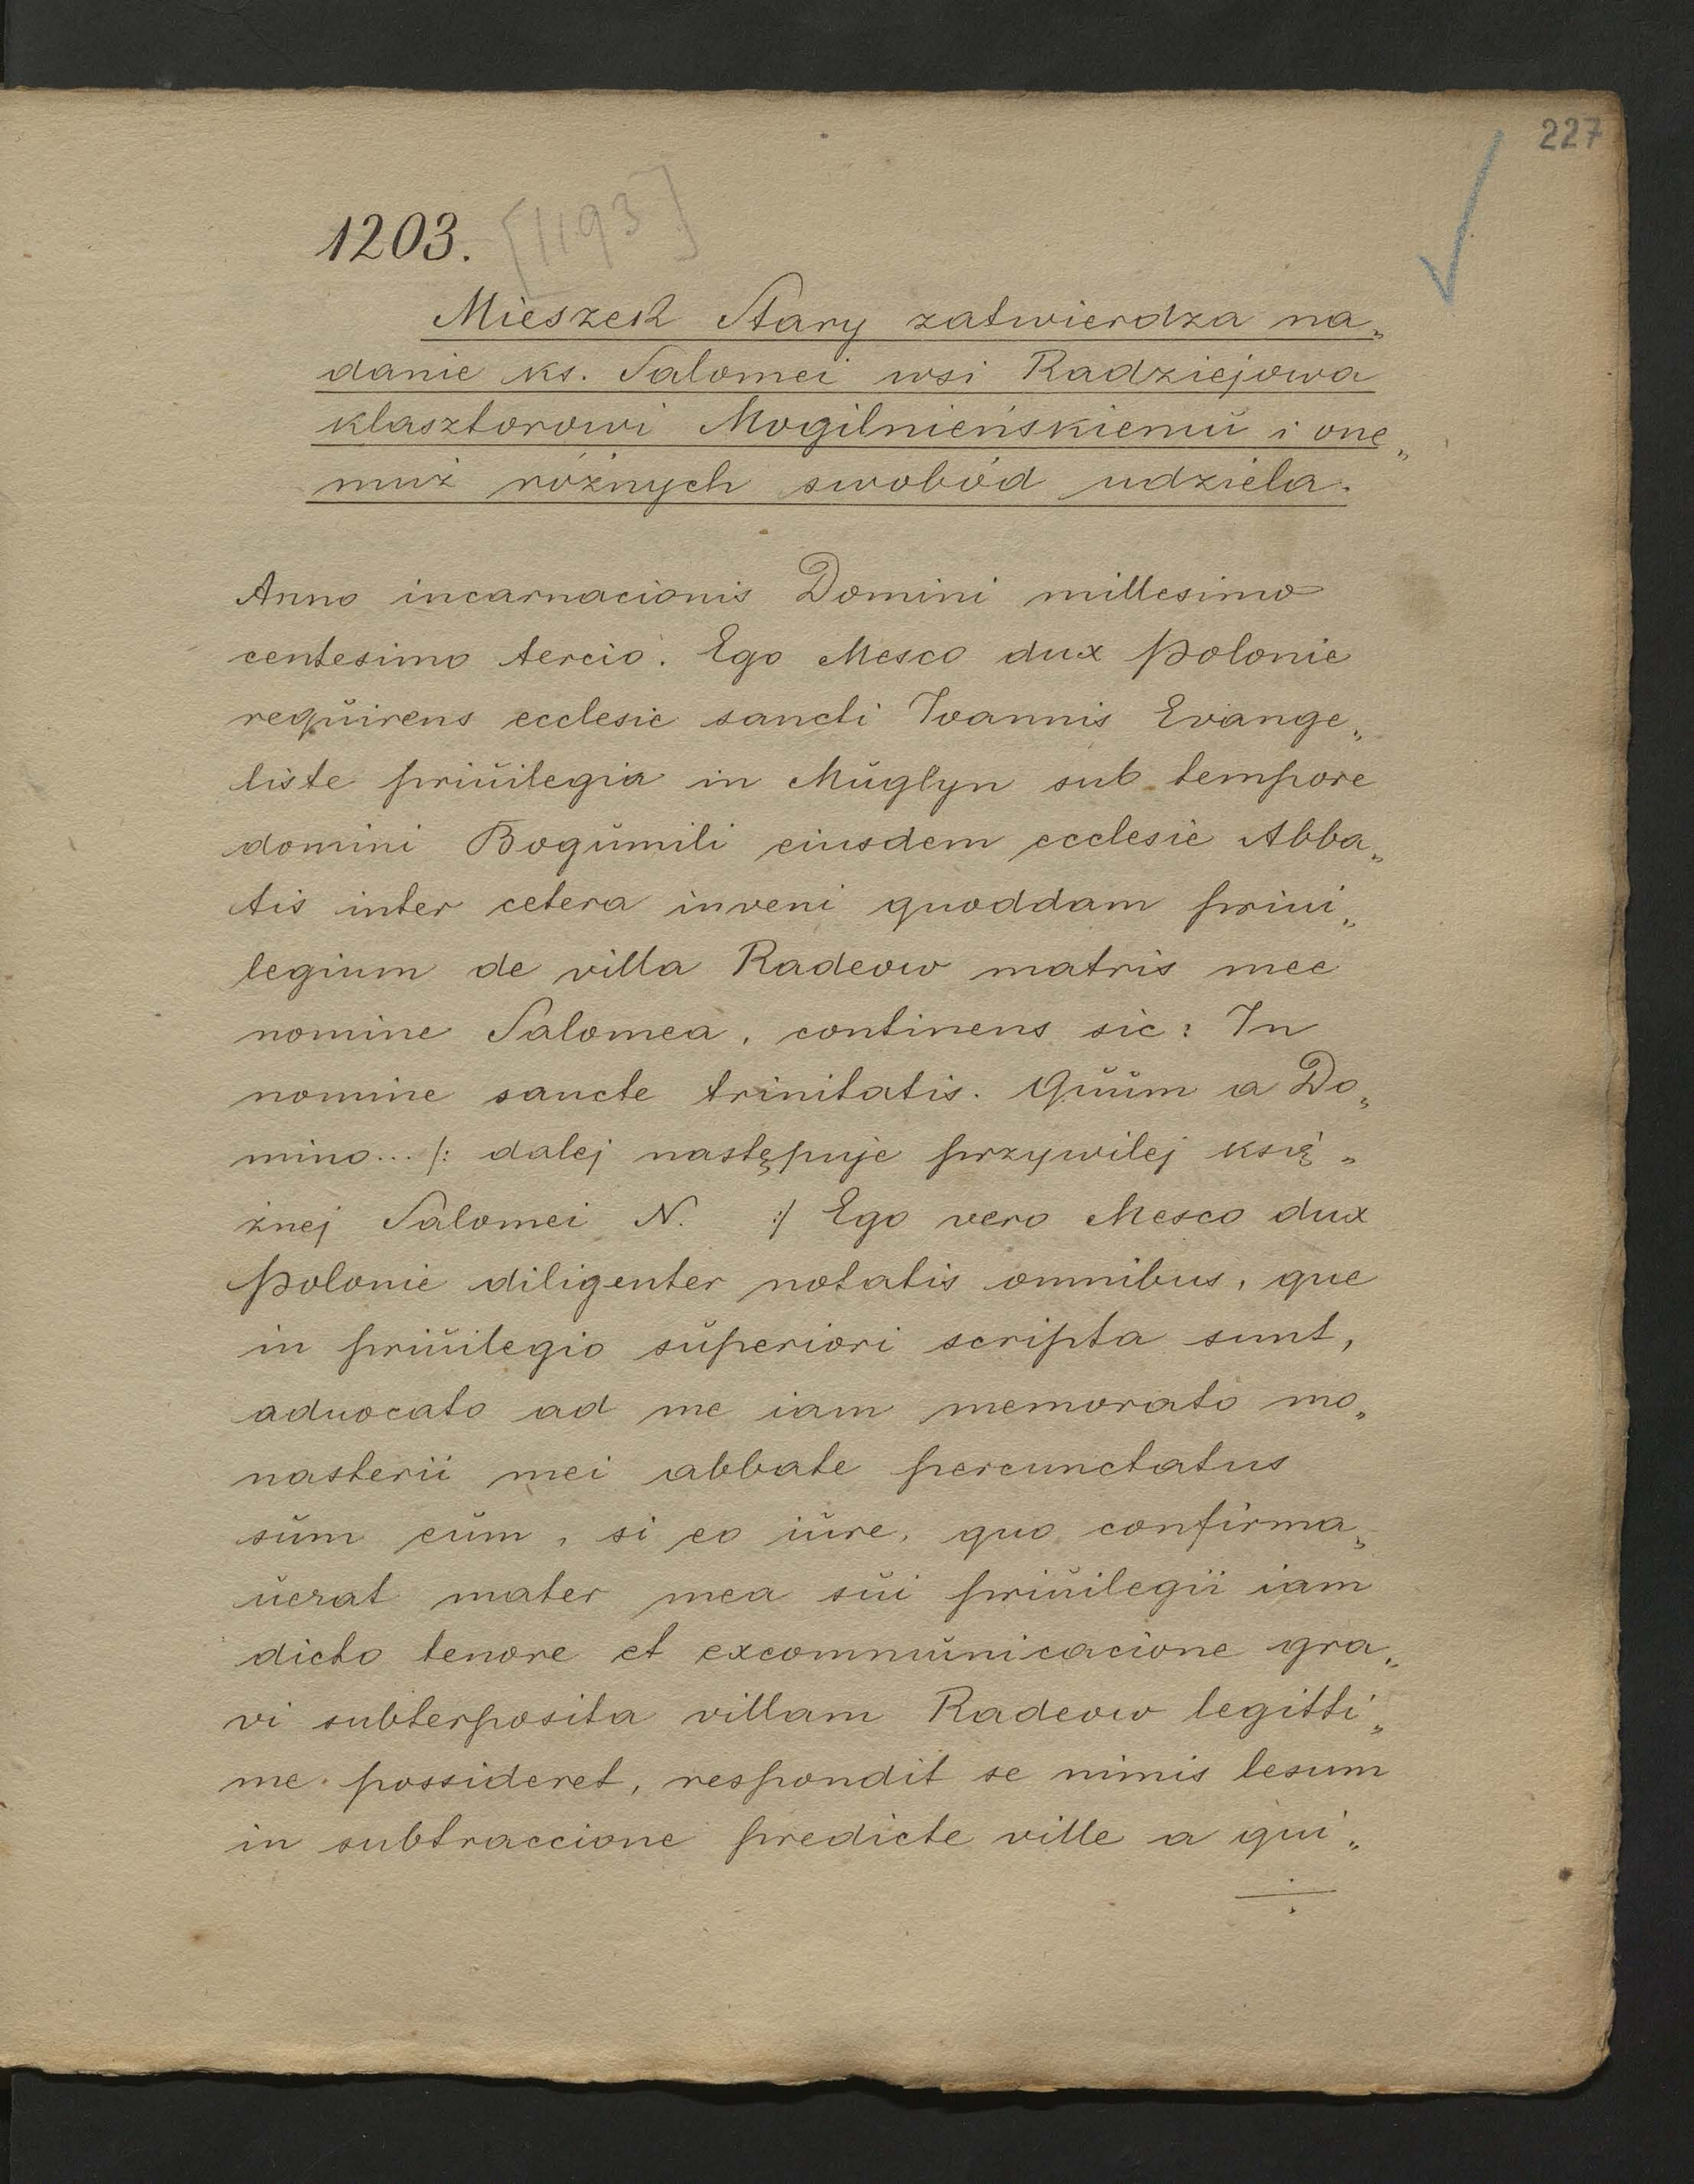 227
1203. [1193]
Mieszek Stary zatwierdza na„
danie ks. Salomei wsi Radziejowa
klasztorowi Mogilnieńskiemŭ i one„
muż różnych swobód udziela.
Anno incarnacionis Domini millesimo
centesimo tercio. Ego Mesco dux Polonie
reqŭirens ecclesie sancti Ioannis Evange„
liste priŭilegia in Mŭglyn sub tempore
domini Bogŭmili eiusdem ecclesie Abba„
tis inter cetera inveni quoddam priui„
legium de villa Radeow matris mee
nomine Salomea, continens sic: In
nomine sancte trinitatis. Qŭŭm a Do„
mino... /: dalej następuje przywilej księ„
żnej Salomei N. :/ Ego vero Mesco dux
Polonie diligenter notatis omnibus, que
in priŭilegio sŭperiori scripta sunt,
aduocato ad me iam memorato mo„
nasterii mei abbate percunctatus
sŭm eŭm, si eo iŭre, quo confirma„
ŭerat mater mea sŭi priŭilegii iam
dicto tenore et excommŭnicacione gra„
vi subterposita villam Radeow legitti„
me possideret, respondit se nimis lesum
in subtraccione predicte ville a qui„